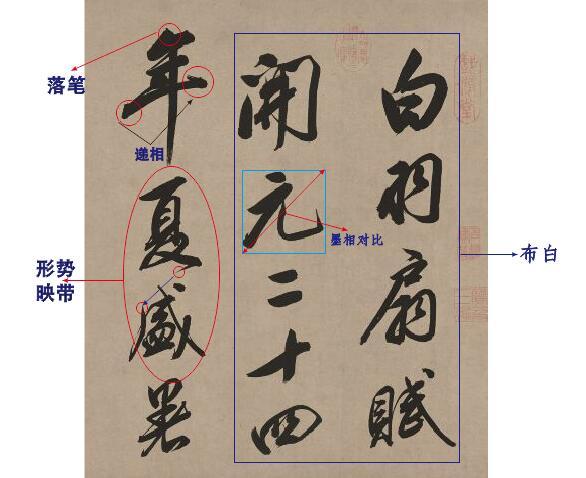 白羽扇賦
開元二十四
年夏盛暑
落笔
递相
墨相对比
形势
映带
布白